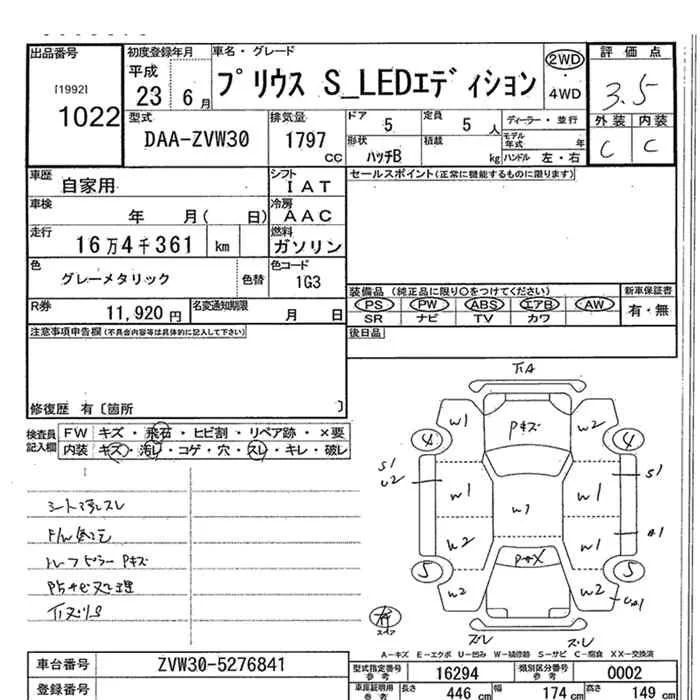 出品番号 初度登録年月 車名・グレード 評価点
[1992] 平成 プリウス S_LEDエディション 2WD ・ 4WD 3.5
1022 23 6月
型式 排気量 ドア 定員 ディーラー・並行 外装 内装
DAA-ZVW30 1797 CC 5 5 人 モデル年式 年 C C
形状 積載
ハッチB kg ハンドル 左・右
車歴 自家用 シフト IAT セールスポイント(正常に機能するものに限ります)
車検 年 月( 日) 冷房 AAC
走行 16万4千361 km 燃料 ガソリン
色 グレーメタリック 色替 色コード 1G3
装備品 (純正品に限り○をつけてください) 新車保証書
R券 11,920円 名変通知期限 月 日 PS PW ABS エアB AW 有・無
SR ナビ TV カワ
注意事項申告欄(不具合内容等は具体的に記入して下さい) 後日品
修復歴 有〔箇所 〕
検査員記入欄 FW キズ・飛石・ヒビ割・リペア跡・×要
内装 キズ・汚レ・コゲ・穴・スレ・キレ・破レ
下A
W1 Pキズ W2
4 4
S1 U2 S1
W1 W1 W1
W2 W1 A1
5 5
W2 W2 UA1
スペア
ズレ ズレ
A-キズ E-エクボ U-凹み W-補修跡 S-サビ C-腐食 XX-交換済
車台番号 ZVW30-5276841 型式指定番号 参考 16294 類別区分番号 参考 0002
登録番号 車庫証明用 参考 長さ 446 cm 幅 174 cm 高さ 149 cm